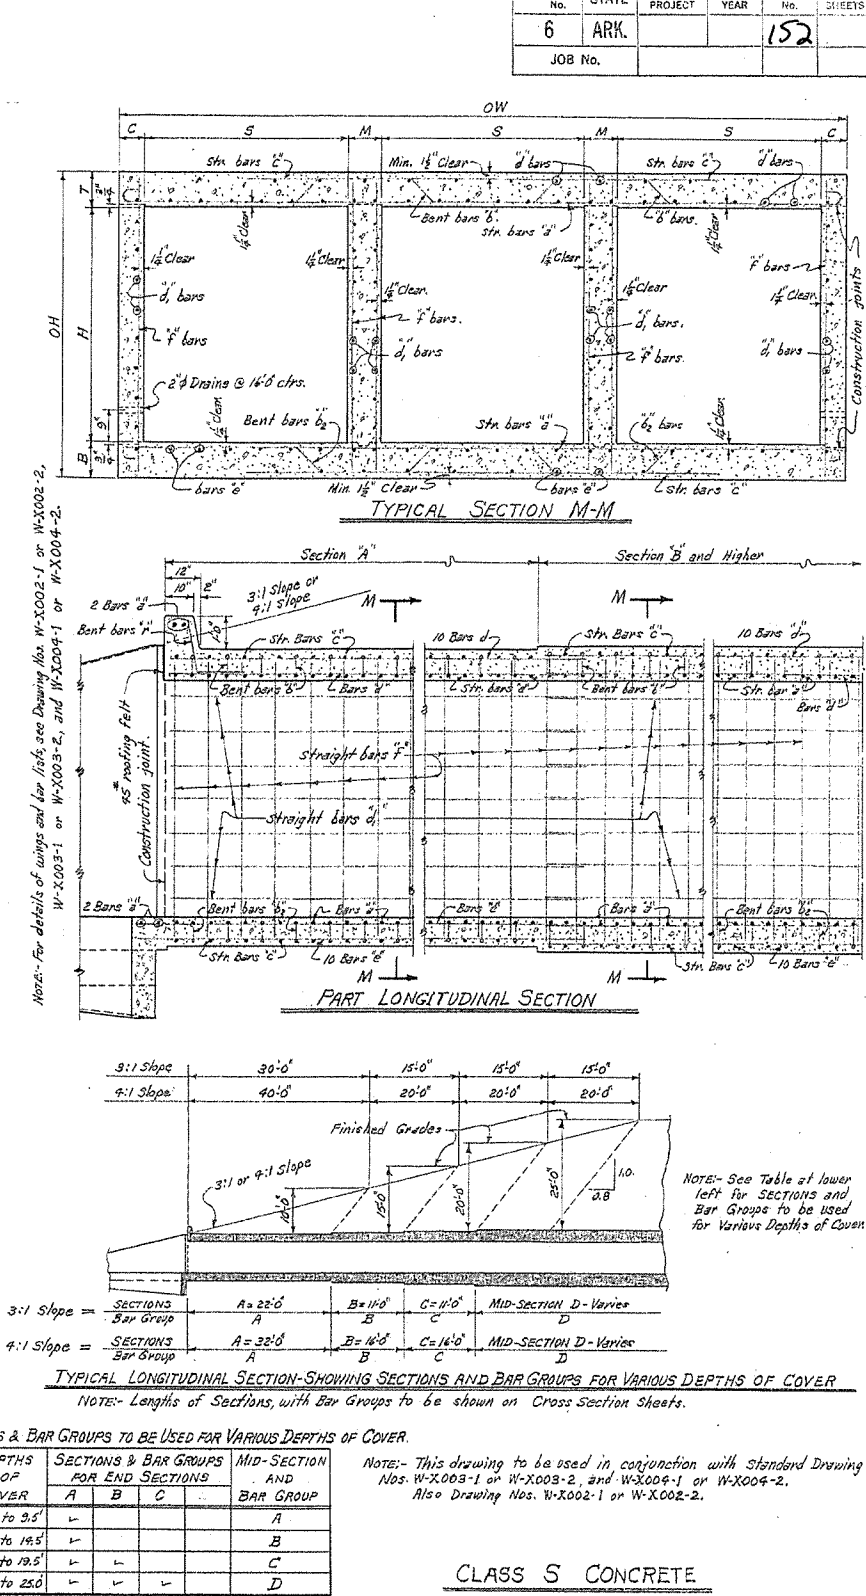 No. STATE PROJECT YEAR No. SHEETS
6 ARK. 152
JOB No.
OW
C S M S M S C
Str. bars "c" Min. 1½" Clear "d" bars Str. bars "c" "d" bars
T
Bent bars "b". "b" bars.
Str. bars "a"
1¼" Clear 1¼" Clear
1¼" Clear 1¼" Clear 1¼" Clear "f" bars
1¼" Clear. 1¼" Clear 1¼" Clear
"d₁" bars "f" bars. "d₁" bars.
OH H
"f" bars "d₁" bars "f" bars. "d₁" bars
Construction Joints
2"ϕ Drains @ 16'-0" ctrs.
9" 1½" Clear Bent bars "b₂" Str. bars "a" "b₂" bars 1½" Clear
B
bars "e" Min. 1½" Clear bars "e" Str. bars "c"
TYPICAL SECTION M-M
NOTE:- For details of wings and bar lists, see Drawing Nos. W-X002-1 or W-X002-2,
W-X003-1 or W-X003-2, and W-X004-1 or W-X004-2.
Section "A" Section "B" and Higher
12"
10" 2" 3:1 Slope or
4:1 Slope
M M
2 Bars "a"
Bent bars "r" 1'-0"
Str. Bars "c" 10 Bars d Str. Bars "c" 10 Bars "d"
Bent bars "b" Bars "d" Str. Bars "a" Bent bars "b" Str. bar "a"
Bars "d"
#45 roofing felt
Construction joint.
Straight bars "f"
Straight bars "d₁"
2 Bars "a" Bent bars "b₂" Bars "a" Bars "e" Bars "a" Bent bars "b₂"
Str. Bars "c" 10 Bars "e" Str. Bars "c" 10 Bars "e"
M M
PART LONGITUDINAL SECTION
3:1 Slope 30'-0" 15'-0" 15'-0" 15'-0"
4:1 Slope 40'-0" 20'-0" 20'-0" 20'-0"
Finished Grades
3:1 or 4:1 Slope
10'-0" 15'-0" 20'-0" 25'-0" 1.0
0.8
NOTE:- See Table at lower
left for SECTIONS and
Bar Groups to be used
for Various Depths of Cover.
3:1 Slope = SECTIONS A = 22'-0" B = 11'-0" C = 11'-0" MID-SECTION D - Varies
Bar Group A B C D
4:1 Slope = SECTIONS A = 32'-0" B = 16'-0" C = 16'-0" MID-SECTION D - Varies
Bar Group A B C D
TYPICAL LONGITUDINAL SECTION-SHOWING SECTIONS AND BAR GROUPS FOR VARIOUS DEPTHS OF COVER
NOTE:- Lengths of Sections, with Bar Groups to be shown on Cross Section Sheets.
S & BAR GROUPS TO BE USED FOR VARIOUS DEPTHS OF COVER.
PTHS SECTIONS & BAR GROUPS MID-SECTION
OF FOR END SECTIONS AND
VER A B C BAR GROUP
to 9.5' ✓ A
to 14.5' ✓ B
to 19.5' ✓ ✓ C
to 25.0' ✓ ✓ ✓ D
NOTE:- This drawing to be used in conjunction with Standard Drawing
Nos. W-X003-1 or W-X003-2, and W-X004-1 or W-X004-2.
Also Drawing Nos. W-X002-1 or W-X002-2.
CLASS S CONCRETE